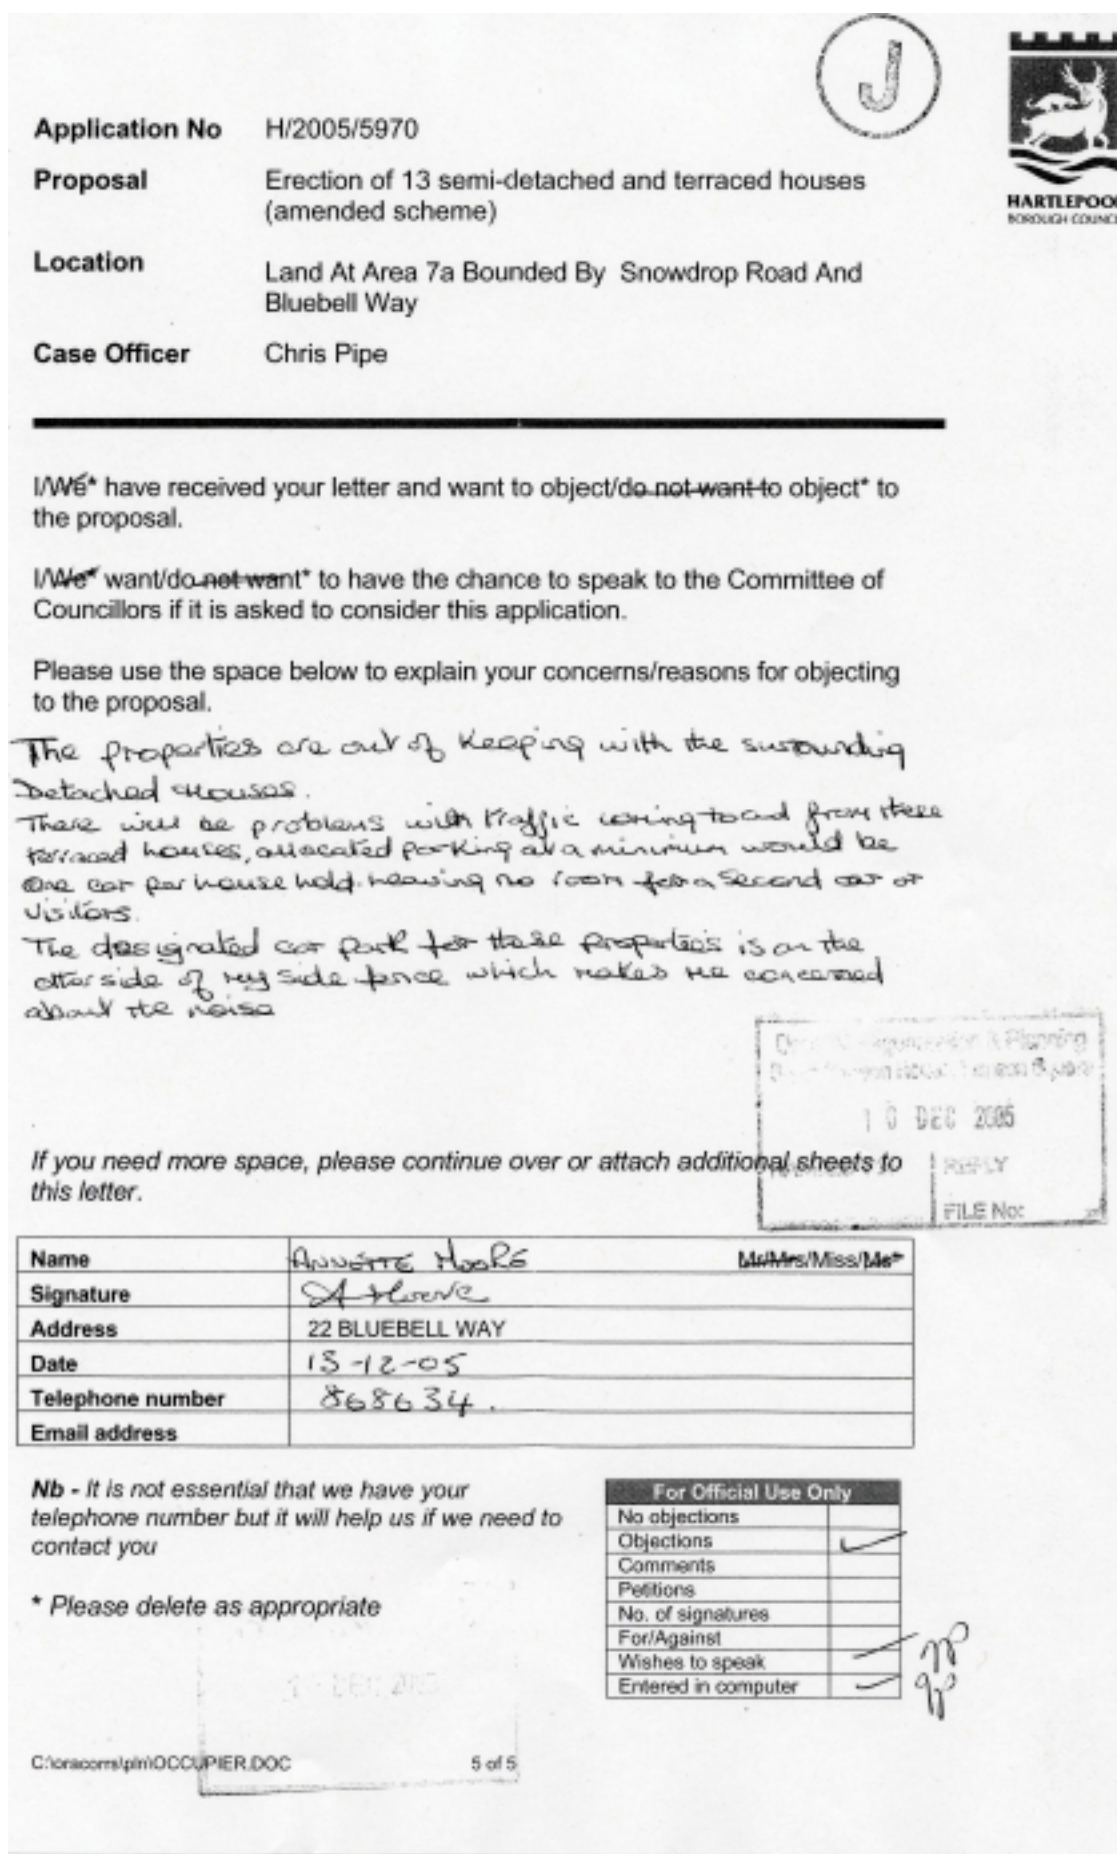 J
HARTLEPOOL
BOROUGH COUNCIL
Application No H/2005/5970
Proposal Erection of 13 semi-detached and terraced houses
(amended scheme)
Location Land At Area 7a Bounded By Snowdrop Road And
Bluebell Way
Case Officer Chris Pipe
I/We* have received your letter and want to object/do not want to object* to
the proposal.
I/We* want/do not want* to have the chance to speak to the Committee of
Councillors if it is asked to consider this application.
Please use the space below to explain your concerns/reasons for objecting
to the proposal.
The properties are out of keeping with the surrounding
Detached Houses.
There will be problems with traffic coming to and from these
terraced houses, allocated parking at a minimum would be
One car per household. Leaving no room for a second car or
visitors.
The designated car park for these properties is on the
other side of my side fence which makes me concerned
about the noise
& Planning
DEC 2005
REPLY
FILE No:
If you need more space, please continue over or attach additional sheets to
this letter.
Name ANNETTE MOORE Mr/Mrs/Miss/Ms*
Signature A Moore
Address 22 BLUEBELL WAY
Date 15-12-05
Telephone number 868634.
Email address
Nb - It is not essential that we have your
telephone number but it will help us if we need to
contact you
* Please delete as appropriate
For Official Use Only
No objections
Objections
Comments
Petitions
No. of signatures
For/Against
Wishes to speak
Entered in computer
DEC 2005
C:\oracorrs\pln\OCCUPIER.DOC 5 of 5